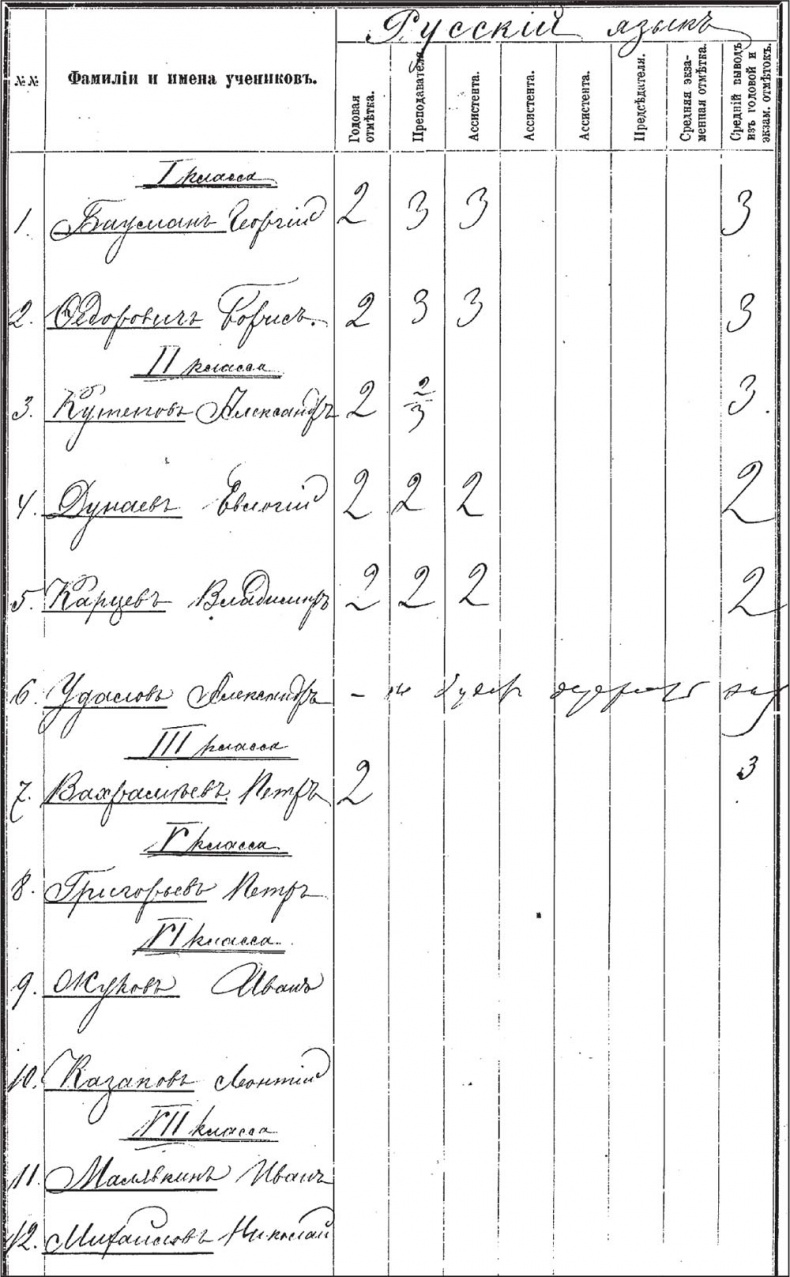 Русскій языкъ
№№ Фамиліи и имена учениковъ. Годовая отмѣтка. Преподавателя. Ассистента. Ассистента. Ассистента. Предсѣдателя. Средняя экзаменная отмѣтка. Средній выводъ изъ годовой и экзам. отмѣтокъ.
I класса
1. Бауманъ Георгій 2 3 3 3
2. Ѳедоровичъ Борисъ. 2 3 3 3
II класса
3. Кутеповъ Александръ 2 2/3 3.
4. Дунаевъ Евлогій 2 2 2 2
5. Карцевъ Владимиръ 2 2 2 2
6. Удаловъ Александръ –
III класса
7. Вахрамѣевъ Петръ 2 3
V класса
8. Григорьевъ Петръ
VI класса.
9. Жуковъ Иванъ
10. Казаковъ Леонтій
VII класса
11. Малявкинъ Иванъ
12. Михайловъ Николай